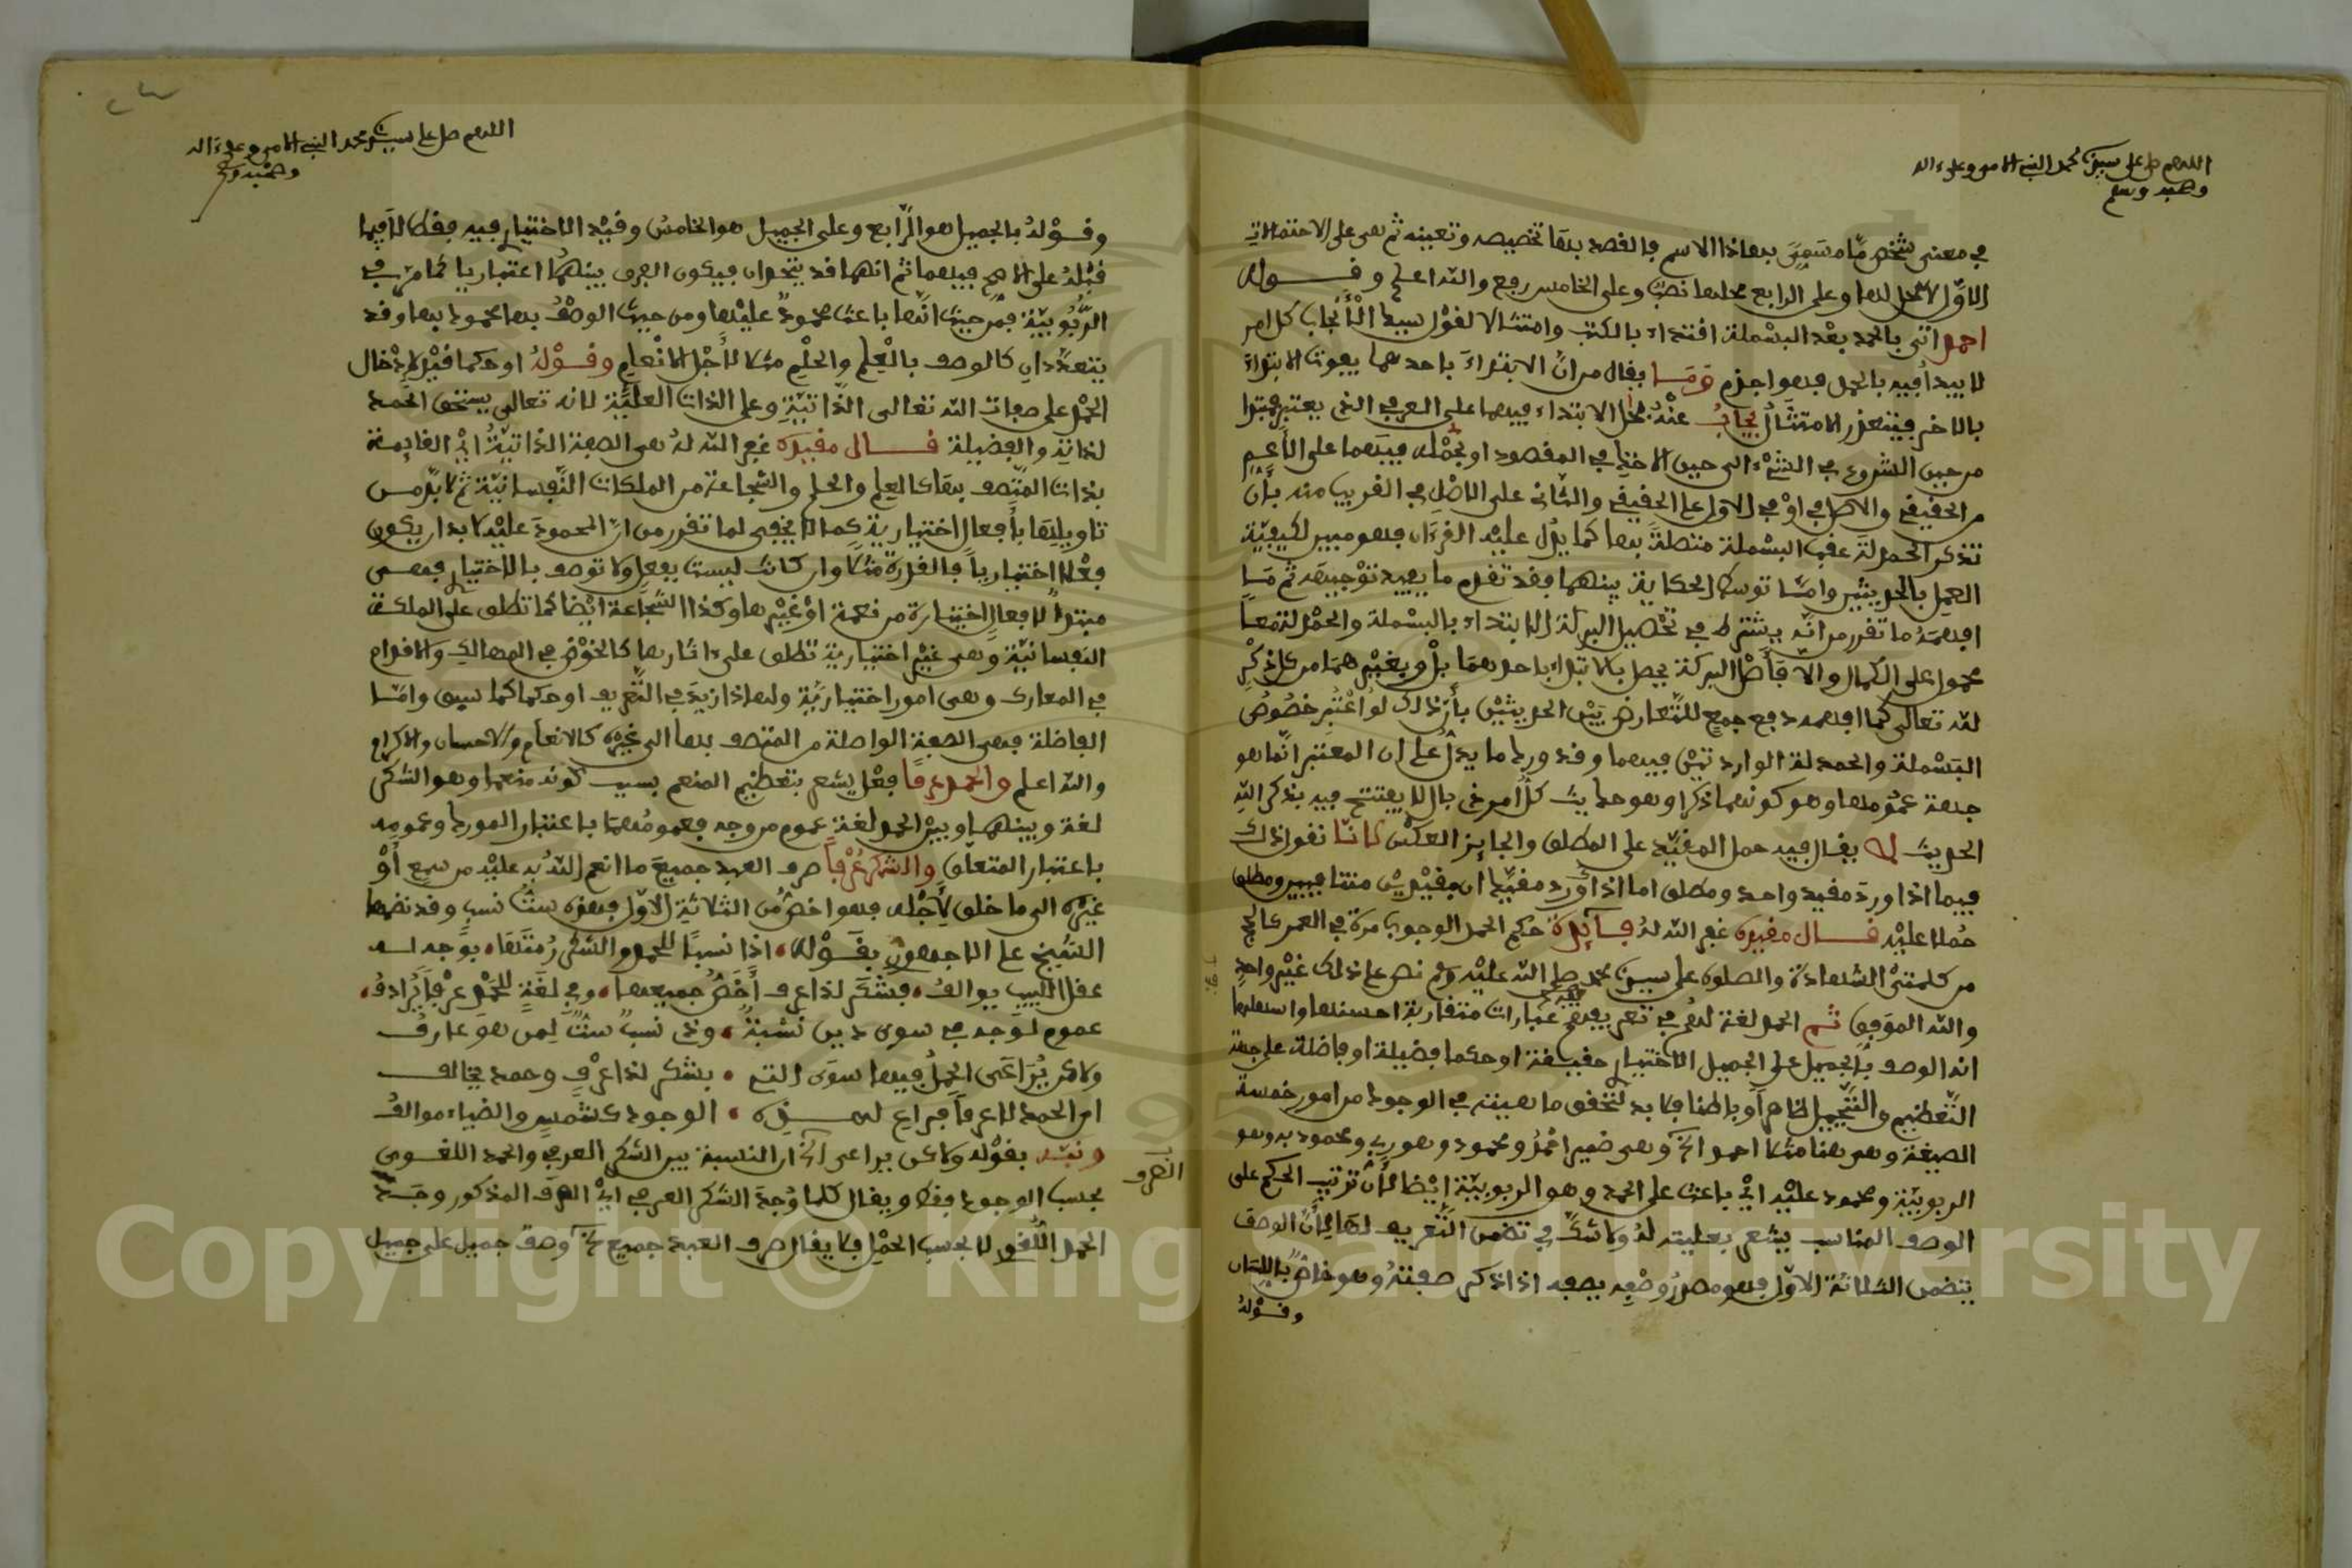 اللهم صل على سيدنا محمد النبي الامي وعلى ءاله
وصحبه وسلم
في معنى شخص مّا مسمى بهاذا الاسم فالقصد بها تخصيصه وتعيينه ثم هي على الاحتمالات
الاوّل لا محل لها وعلى الرابع محلها نصب وعلى الخامس رفع والله اعلم وقوله
احمد اتى بالحمد بعْد البسْملة اقتداء بالكتب وامتثالا لقوْل سيد الْأنْجاب كل امر
لا يبدأ فيه بالحمد فهو اجذم وما يقال من انّ الابتداءَ باحدهما يفوت الابتداءَ
بالاخر فيتعذر الامتثال يجابُ عنْهُ بحمل الابتداء فيهما على العرفي الذي يعتبر ممتدا
من حين الشروع في الشيْء الى حين الاخذ في المقصود او بحمْله فيهما على الاعم
من الحقيقي والاضافي اوْ في الاول على الحقيقي والثاني على الاضافي القريب منه بأن
تذكر الحمدلة عقب البسْملة متصلةً بها كما يدُل عليه القرءان فهو مبين لكيفيّة
العمل بالحديثين وامّا توسط الحكاية بينهما فقد تقدم ما يفيد توْجيهه ثم ما
افهمهُ ما تقرر من انّه يشترط في تحْصيل البركة الابتداء بالبسْملة والحمْدلة معاً
محمول على الكمال والا فأصْل البركة يحصل بالابتداء باحدهما بلْ وبغيْرهما من كل ذكْرٍ
لله تعالى كما افهمه دفع جمع للتّعارض بيْن الحديثيْن بأن ذلك لو اعْتُبر خصُوصُ
البسْملة والحمدلة الواردتيْن فيهما وقد ورد ما يدلّ على ان المعتبر انّما هو
جهة عمُومها وهو كونهما ذكرا وهو حديث كلُّ امر ذي بال لا يفتتح فيه بذكر اللهِ
الحديث لا يقال فيه حمل المقيّد على المطلق والجايز العكْس لانّا نقول ذلك
فيما اذا وردَ مقيد واحد ومطلق اما اذا ورد مقيّدان بقيْديْن متنافيين ومطلق
حُملا عليْه قال مقيده غفر الله لهُ فايدة حكم الحمد الوجوب مرة في العمر كالحج
من كلمتيْ الشهادة والصلوة على سيدنا محمد صلى الله عليْه وسلم نص على ذلك غيْر واحد
والله الموَفق ثم الحمد لغة لهم في تعريفه عبارات متقاربة احسنها واسهلها
انه الوصف بالجميل على الجميل الاختياري حقيقة او حكما فضيلة او فاضلة على جهة
التّعظيم والتّبجيل ظاهراً وباطنا فلا بد لتحقق ماهيته في الوجود من امور خمسة
الصيغة وهي هنا مثلا احمد الخ وهي ضمير احْمدُ ومحمود وهو ربي ومحمود به وهو
الربوبيّة ومحمود عليْه ايْ باعث على الحمد وهو الربوبيّة ايْضا لأنّ ترْتيب الحكم على
الوصف المناسب يشعر بعليته لهُ ولا شكّ في تضمن التّعريف لها لأنّ الوصف
يتضمن الثلاثة الاوّل فهو مصدرُ وصْفه يصفه اذا ذكر صفتهُ وهو خاصّ باللسان
وقوْلهُ
اللهم صل على سيدنا محمد النبي الامي وعلى ءاله
وصحْبه وسلم
وقوْلهُ بالجميل هو الرّابع وعلى الجميل هو الخامس وقيْد الاختياري فيه فقط لا فيما
قبْلهُ على الاصح فيهما ثم انهما قد يتحدان فيكون الفرق بينهمُا اعتباريا كما مرّ في
الرُّبُوبيّة فمن حيث انّها باعث محمودٌ عليْها ومن حيث الوصْفُ بها محمود بها وقد
يتعدّدان كالوصف بالْعِلم والحلْم مثلا لأجْل الانْعام وقوْلهُ او حكما قيْد لادْخال
الحمْد على صفات الله تعالى الذّاتيّة وعلى الذات العليّة لانه تعالى يستحق الحمد
لذاته والفضيلة قال مقيده غفر الله لهُ هي الصفة الذاتيّةُ ايْ القايمة
بذات المتّصف بها كالعلم والحلم والشجاعة من الملكات النّفسانيّة ثم لا بدّ من
تاويلها بأفعال اختيارية كما لا يخفى لما تقرر من انّ المحمودَ عليْه لا بد ان يكون
فعْلا اختيارياً فالقدرة مثلاً وان كانت ليست بفعل ولا توصف بالاختيار فهي
مبتدأ لافعال اختيارية من نعمة اوْ غيْرها وكذا الشّجاعة ايْضا كما تطلق على الملكة
النفسانيّة وهي غيْر اختيارية تطلق على ءاثارها كالخوْض في المهالك والاقدام
في المعارك وهي امور اختياريّة ولهاذا زيدَ في التّعْريف او حكما كما سبق وامّا
الفاضلة فهي الصفة الواصلة من المتصف بها الى غيْره كالانعام والاحسان والاكرام
والله اعلم والحمد عرفاً فعْل يشعر بتعظيم المنعم بسبب كونه منعما وهو الشكر
لغة وبينهما وبيْن الحمد لغة عموم من وجه فعمومُهما باعتبار المورد وعمومه
باعتبار المتعلّق والشكر عُرْفاً صرف العبد جميع ما انعم اللهُ به عليْه من سمع أوْ
غيْره الى ما خلق لأجْله فهو اخصُّ من الثلاثة الاوّل فهذه ستُّ نسب وقد نظمها
الشّيخ علي الاجهوري بقوْله، اذا نسباً للحمد والشكر رُمتها، بوَجه له
عقل اللبيب يوالفُ، فشكر لذا عرف أخَصُّ جميعها، وفي لغة للحمْد عرْفاً يُرادفُ،
عموم لوَجه في سوى ذين نسْبةٌ، وذي نسبٌ ستٌّ لِمن هوَ عارفُ
ولاكن يُرَاعَى الحمْلُ فيها سوَى التي، بشكر لذا عرْفٍ وحمد يخالف
اي الحمد لا عرفاً فراع لهذه، الوجود كشمْسٍ والضياء موالفُ
ونبّه بقوْله ولاكن يراعى الخ ان النسبة بين الشكر العرفي والحمد اللغوي
بحسب الوجود فقط ويقال كلما وُجدَ الشكر العرفي ايْ الصرف المذكور وجد
الصرف
الحمد اللُّغوي لا بحسب الحمْل فلا يقال صرف العبد جميع الخ وصف جميل على جميل